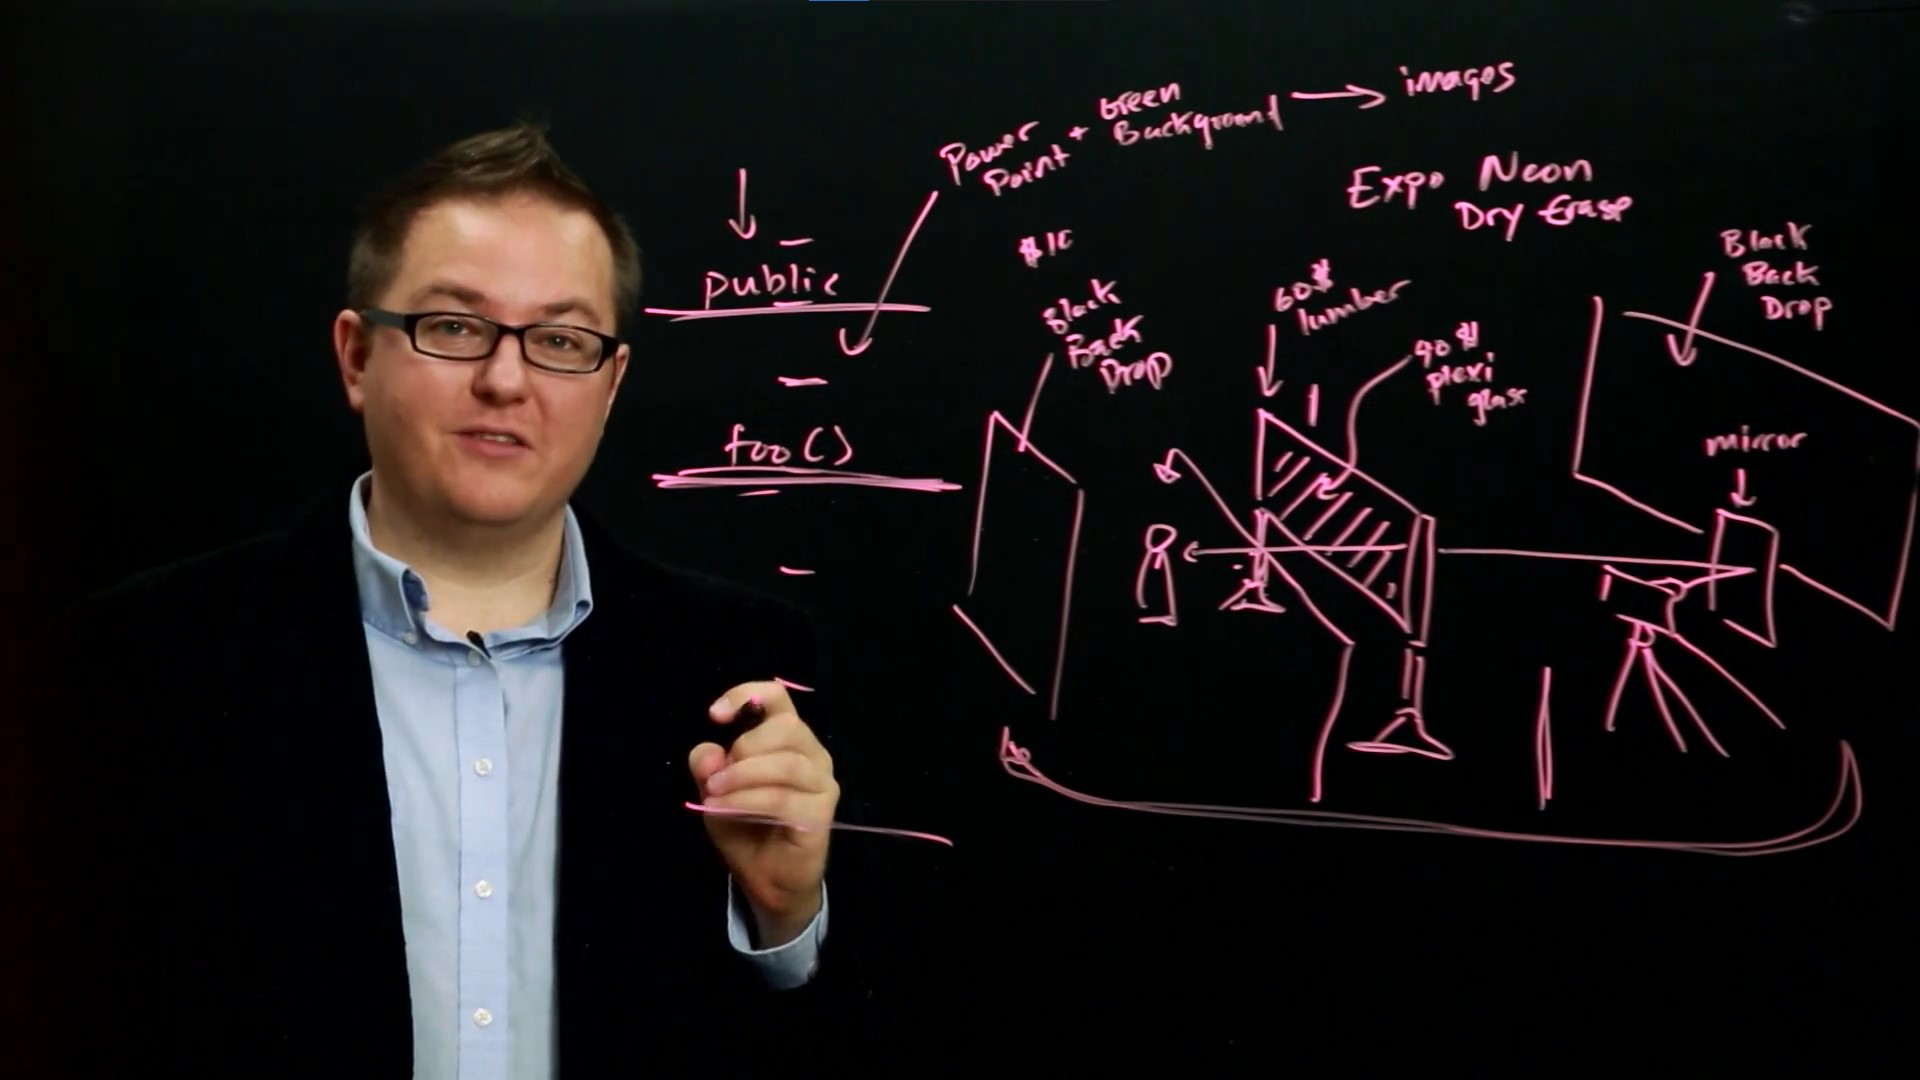 Power
Point
+ Green
Background
→ images
Expo Neon
Dry Erase
public
foo()
$10
Black
Back
Drop
60$
lumber
40$
plexi
glass
Black
Back
Drop
mirror